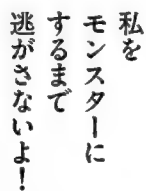 私を
モンスターに
するまで
逃がさないよ!